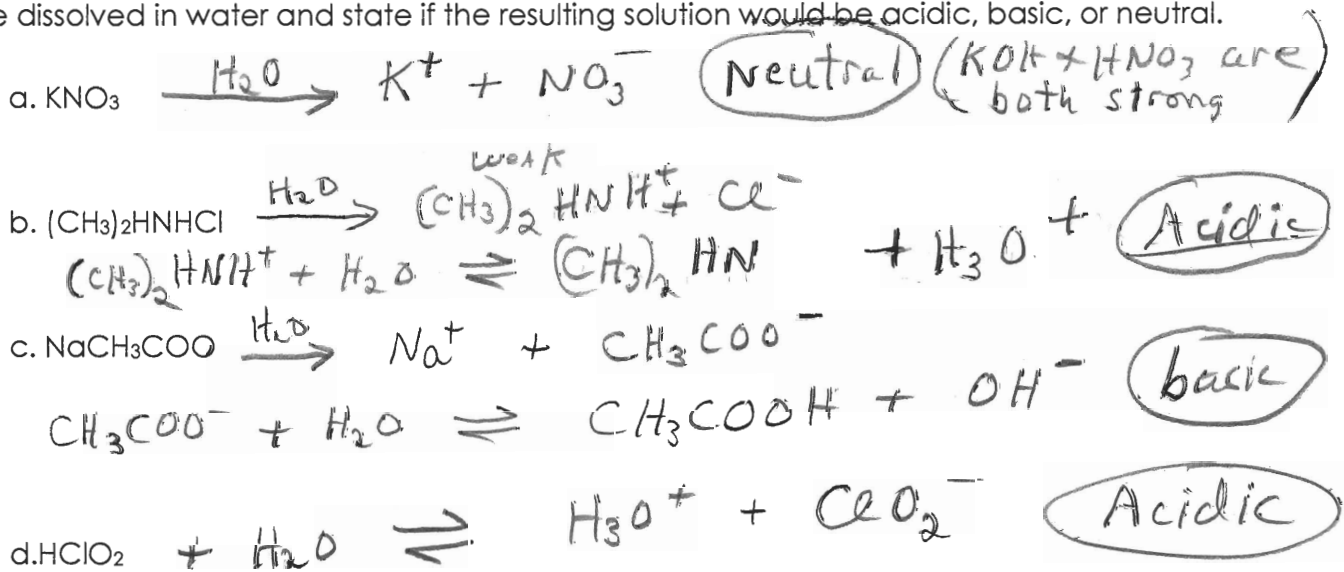 e dissolved in water and state if the resulting solution would be acidic, basic, or neutral.
a. KNO3 H₂O → K⁺ + NO₃⁻ Neutral (KOH + HNO₃ are both strong)
weak
b. (CH3)2HNHCl H₂O → (CH₃)₂ HNH⁺ + Cl⁻
(CH₃)₂ HNH⁺ + H₂O ⇌ (CH₃)₂ HN + H₃O⁺ Acidic
c. NaCH3COO H₂O → Na⁺ + CH₃COO⁻
CH₃COO⁻ + H₂O ⇌ CH₃COOH + OH⁻ basic
d.HClO2 + H₂O ⇌ H₃O⁺ + ClO₂⁻ Acidic